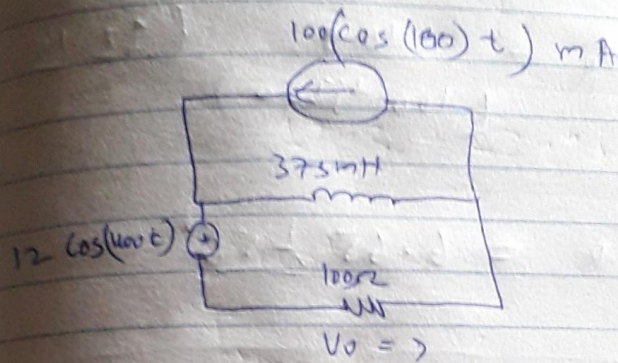 100(cos(100)t) mA
375mH
12 cos(400t)
+
100Ω
Vo = ?